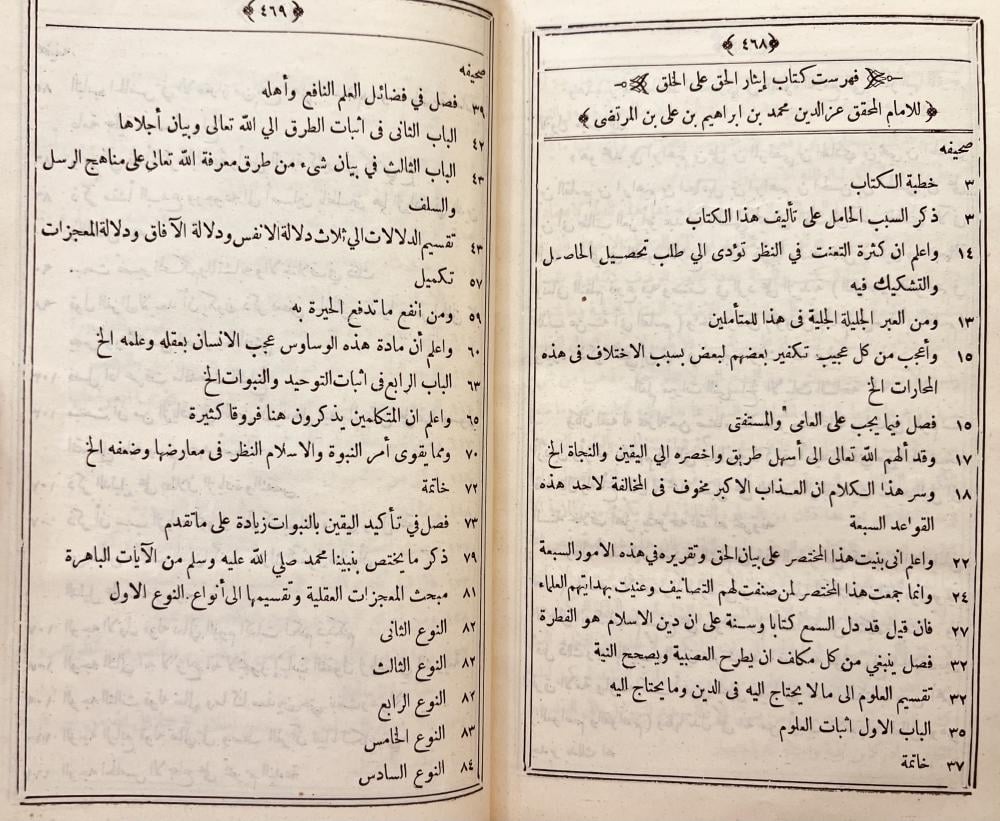 ﴿ ٤٦٨ ﴾
فهرست كتاب إيثار الحق على الخلق
﴿ للامام المحقق عز الدين محمد بن ابراهيم بن على بن المرتضى ﴾
صحيفه
٣ خطبة الكتاب
٣ ذكر السبب الحامل على تأليف هذا الكتاب
١٤ واعلم ان كثرة التعنت في النظر تؤدى الي طلب تحصيل الحاصل
والتشكيك فيه
١٣ ومن العبر الجليلة الجلية فى هذا للمتأملين
١٥ وأعجب من كل عجيب تكفير بعضهم لبعض بسبب الاختلاف فى هذه
المحارات الخ
١٥ فصل فيما يجب على العامى والمستفتى
١٧ وقد ألهم الله تعالى الى أسهل طريق واخصره الي اليقين والنجاة الخ
١٨ وسر هذا الكلام ان العذاب الاكبر مخوف فى المخالفة لاحد هذه
القواعد السبعة
٢٢ واعلم انى بنيت هذا المختصر على بيان الحق وتقريره فى هذه الامور السبعة
٢٤ وانما جمعت هذا المختصر لمن صنفت لهم التصانيف وعنيت بهدايتهم العلماء
٢٧ فان قيل قد دل السمع كتابا وسنة على ان دين الاسلام هو الفطرة
٣٢ فصل ينبغي من كل مكلف ان يطرح العصبية ويصحح النية
٣٢ تقسيم العلوم الى ما لا يحتاج اليه فى الدين وما يحتاج اليه
٣٥ الباب الاول اثبات العلوم
٣٧ خاتمة
﴿ ٤٦٩ ﴾
صحيفه
٣٩ فصل في فضائل العلم النافع وأهله
٤٢ الباب الثانى فى اثبات الطرق الي الله تعالى وبيان أجلاها
٤٣ الباب الثالث في بيان شىء من طرق معرفة الله تعالى على مناهج الرسل
والسلف
٤٣ تقسيم الدلالات الي ثلاث دلالة الانفس ودلالة الآفاق ودلالة المعجزات
٥٧ تكميل
٥٩ ومن انفع ما تدفع الحيرة به
٦٠ واعلم أن مادة هذه الوساوس عجب الانسان بعقله وعلمه الخ
٦٣ الباب الرابع فى اثبات التوحيد والنبوات الخ
٦٥ واعلم ان المتكلمين يذكرون هنا فروقا كثيرة
٧٠ ومما يقوى أمر النبوة والاسلام النظر فى معارضها وضعفه الخ
٧٢ خاتمة
٧٣ فصل في تأكيد اليقين بالنبوات زيادة على ما تقدم
٧٩ ذكر ما يختص بنبينا محمد صلي الله عليه وسلم من الآيات الباهرة
٨١ مبحث المعجزات العقلية وتقسيمها الى أنواع. النوع الاول
٨٢ النوع الثانى
٨٢ النوع الثالث
٨٢ النوع الرابع
٨٣ النوع الخامس
٨٤ النوع السادس